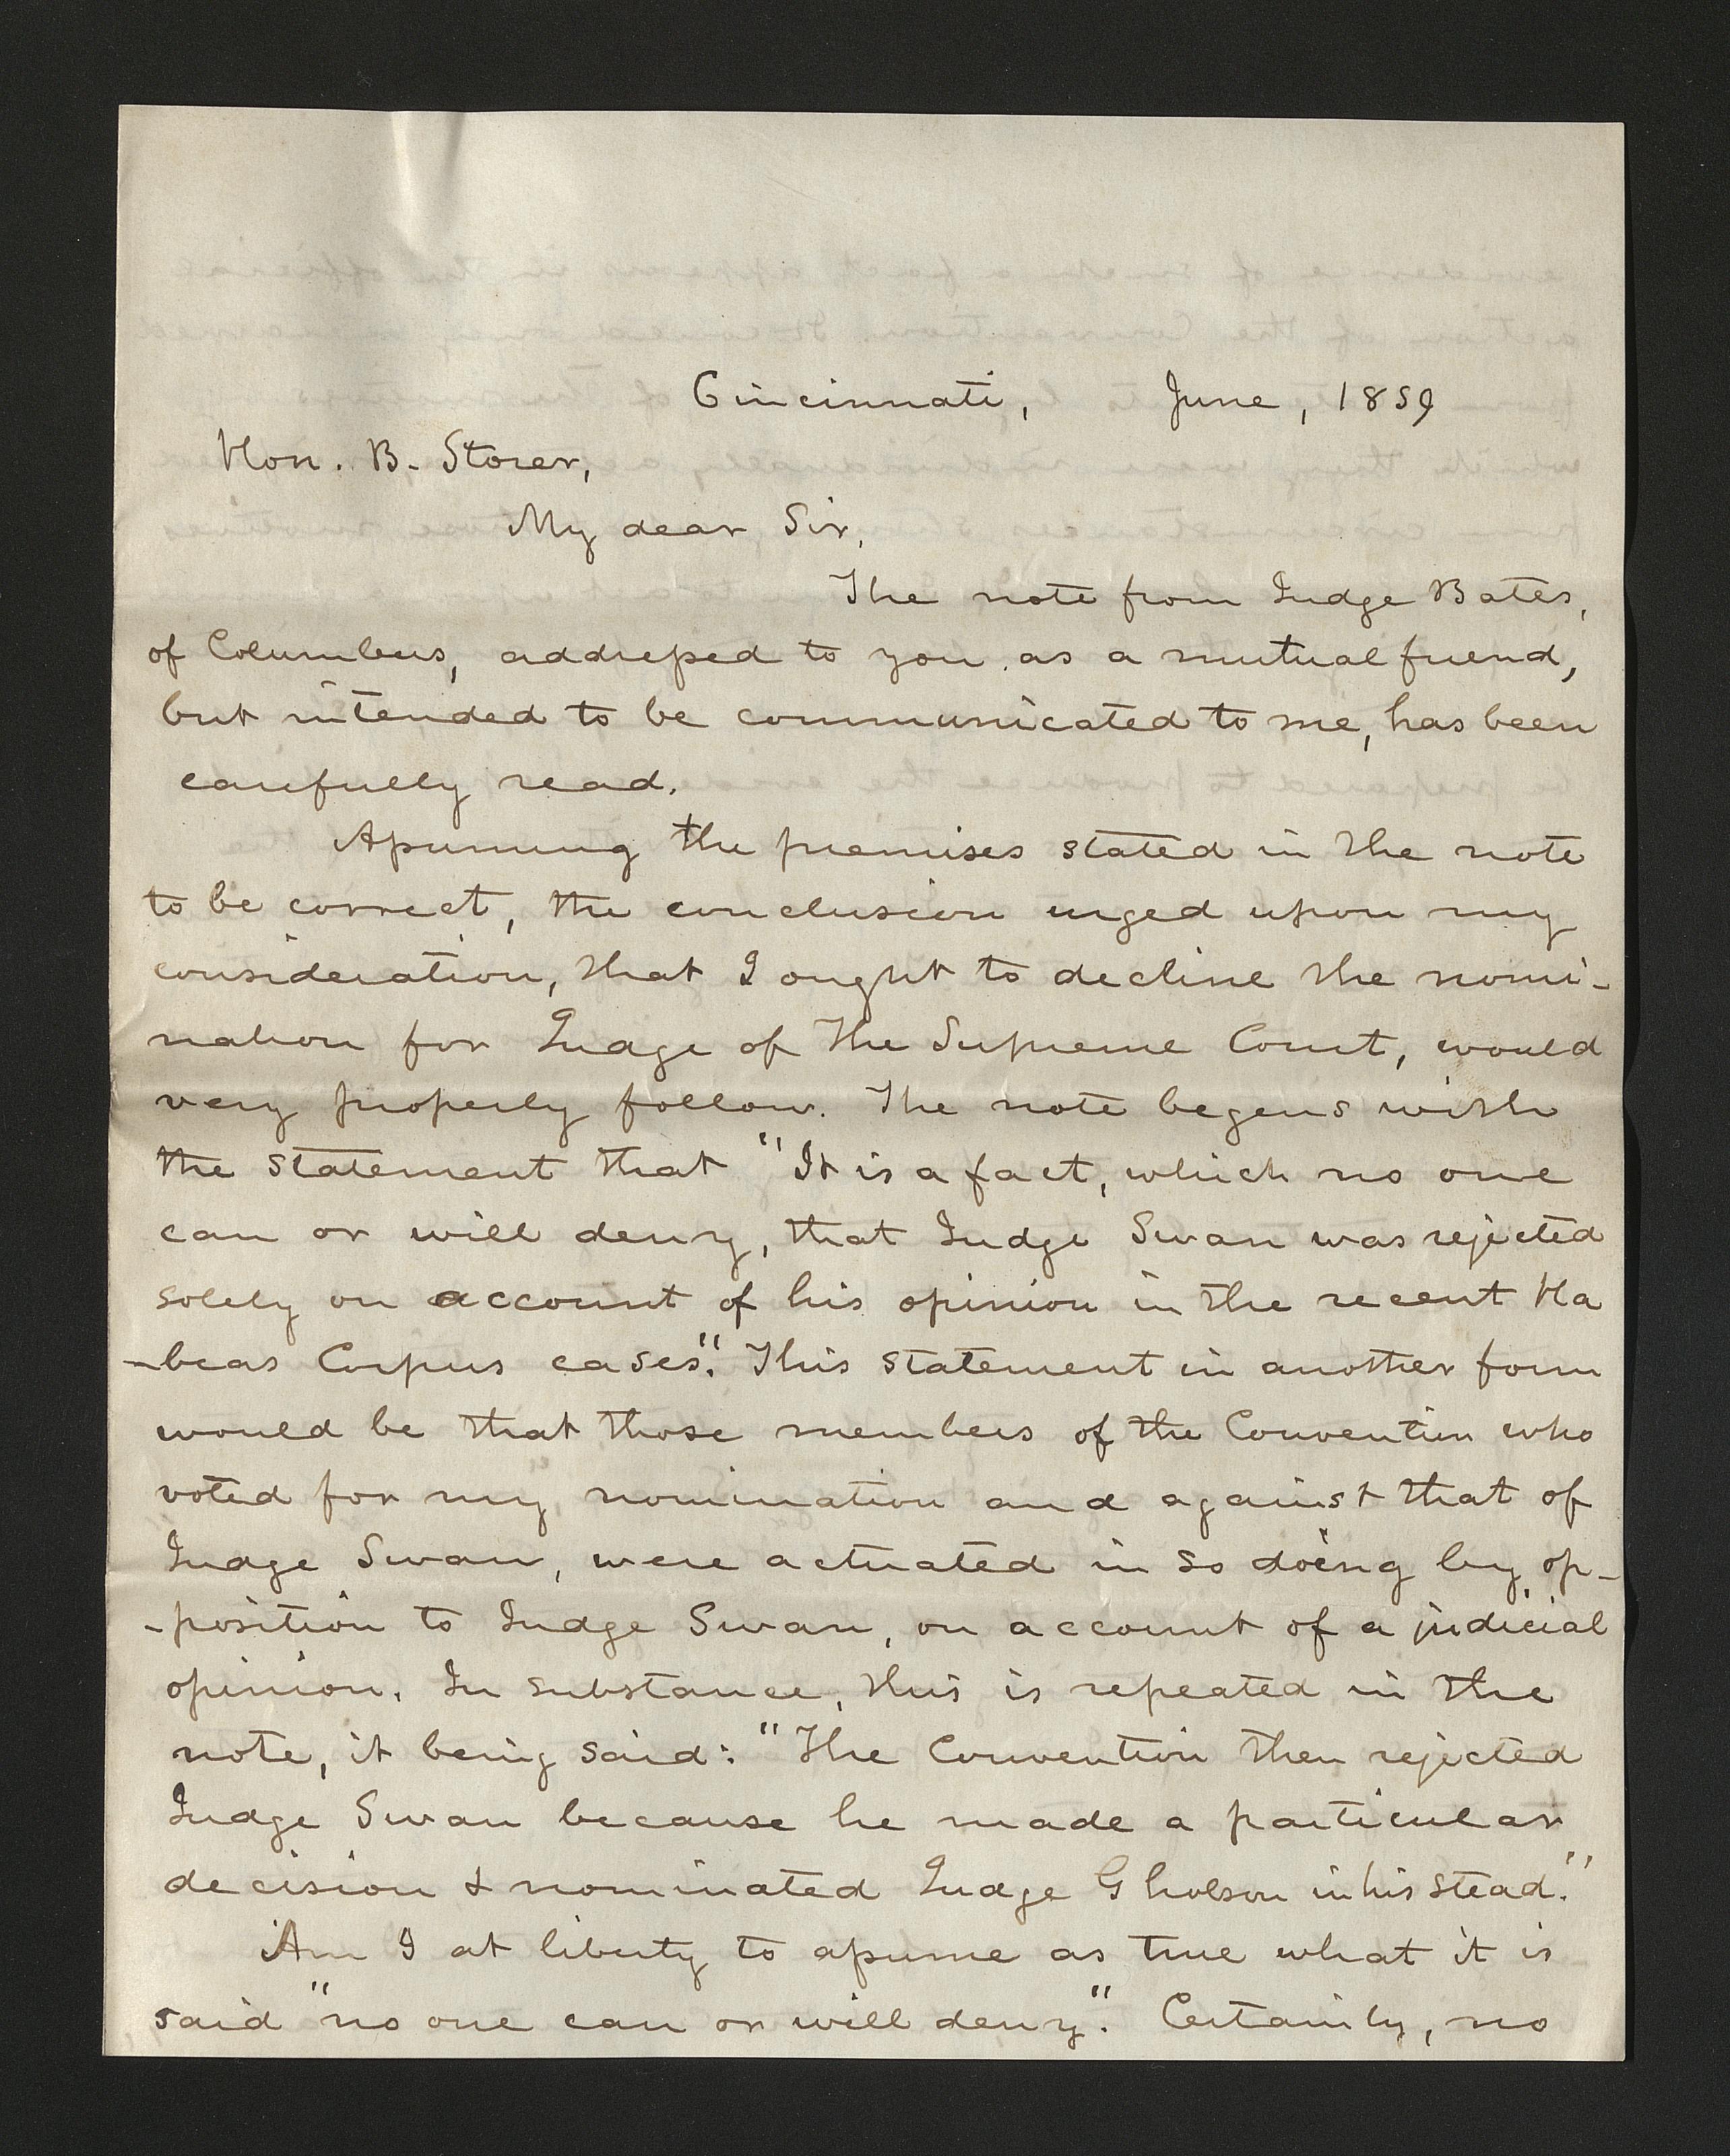 Cincinnati, June, 1859
Hon. B. Storer,
My dear Sir,
The note from Judge Bates,
of Columbus, addressed to you as a mutual friend,
but intended to be communicated to me, has been
carefully read.
Assuming the premises stated in the note
to be correct, the conclusion urged upon my
consideration, that I ought to decline the nomi-
nation for Judge of the Supreme Court, would
very properly follow. The note begens with
the statement that "It is a fact, which no one
can or will deny, that Judge Swan was rejected
solely on account of his opinion in the recent Ha
-beas Corpus cases." This statement in another form
would be that those members of the Convention who
voted for my nomination and against that of
Judge Swan, were actuated in so doing by op-
-position to Judge Swan, on account of a judicial
opinion. In substance, this is repeated in the
note, it being said: "The Convention then rejected
Judge Swan because he made a particular
decision & nominated Judge Gholson in his stead."
Am I at liberty to assume as true what it is
said "no one can or will deny". Certainly, no